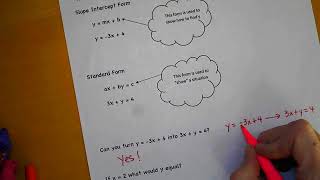 Slope Intercept Form
This form is used to
show how to find y
y = mx + b
y = -3x + 4
Standard Form
This form is used to
"show" a situation
ax + by = c
3x + y = 4
Can you turn y = -3x + 4 into 3x + y = 4?
y = -3x + 4 → 3x + y = 4
yes!
If x = 2 what would y equal?